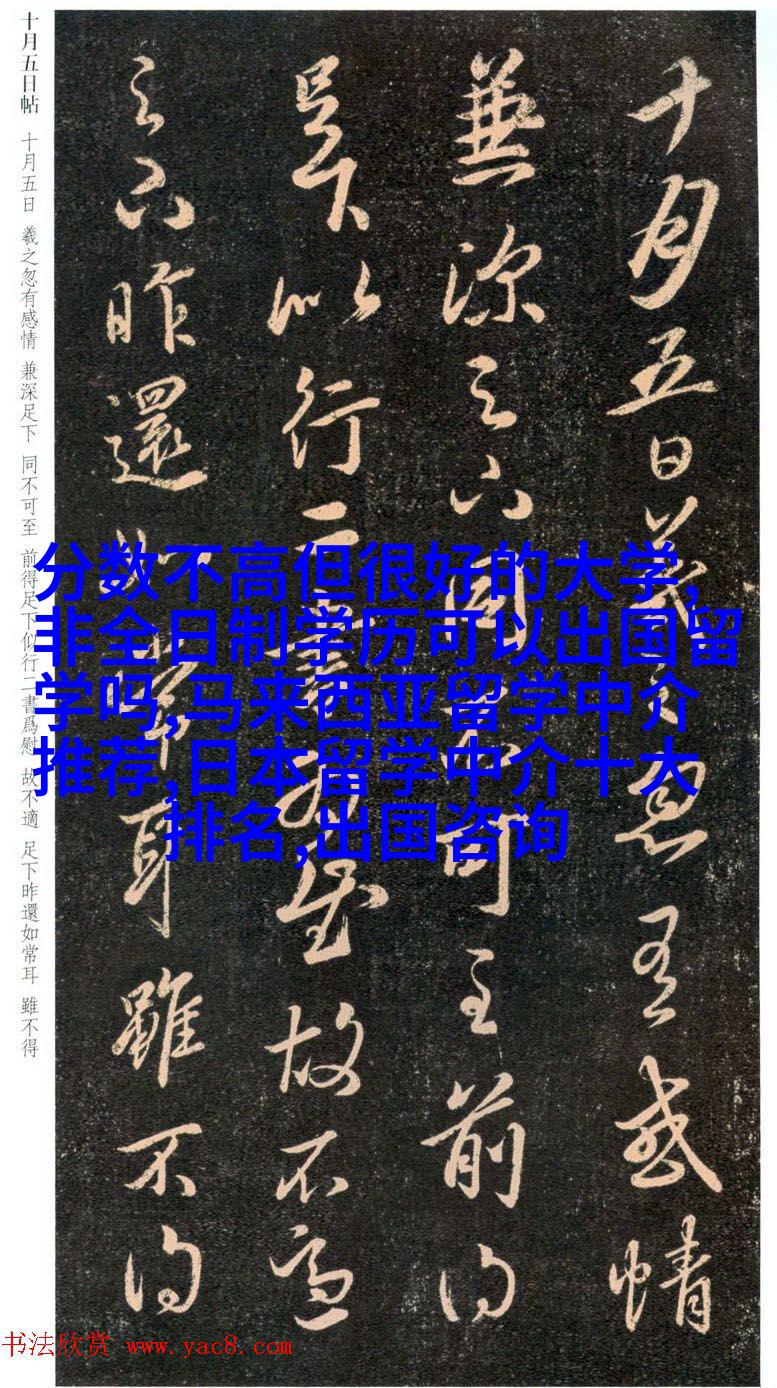 十月五日帖 十月五日 羲之忽有感情 兼深足下 同不可至 前得足下似行二書爲慰 故不適 足下昨還如常耳 雖不得
十月五日羲之忽有感情
兼深足下同不可至前得
足下以行二書爲慰故不適
足下昨還如常耳雖不得
分数不高但很好的大学,
非全日制学历可以出国留
学吗,马来西亚留学中介
推荐,日本留学中介十大
排名,出国咨询
书法欣赏 www.yac8.com